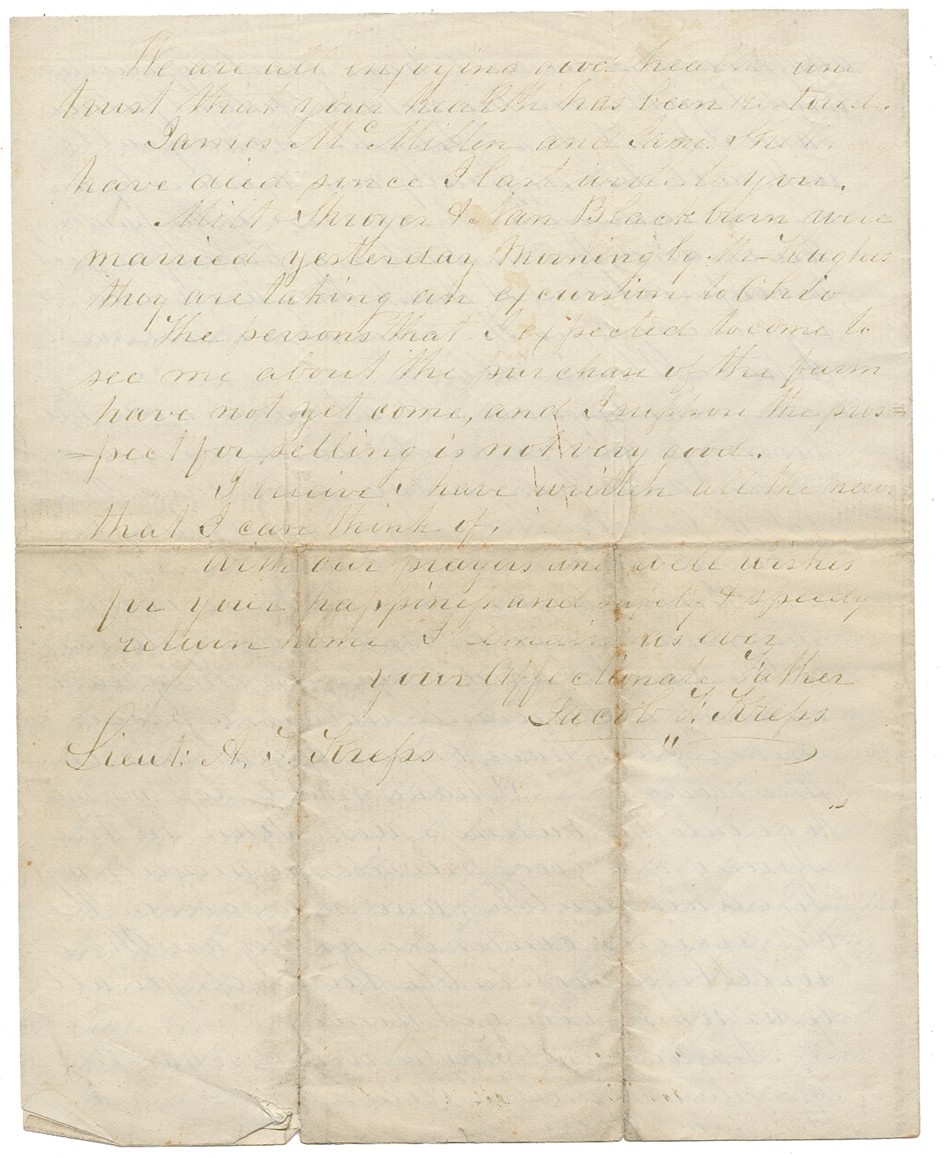 We are all injoying good health and
trust that your health has been
James McMillen and
have died since I last wrote to you.
Milt Shroyer & Nan Blackburn were
married yesterday Morning by Mr Hughes
they are taking an excursion to Ohio
The persons that I expected to come to
see me about the purchase of the farm
have not yet come, and I suppose the pros=
=pect for selling is not very good.
I believe I have written all the news
that I can think of.
With our prayers and well wishes
for your happiness and safety & speedy
return home I remain as ever
your Affectionate Father
Jacob F. Kreps
Lieut. A. T. Kreps "